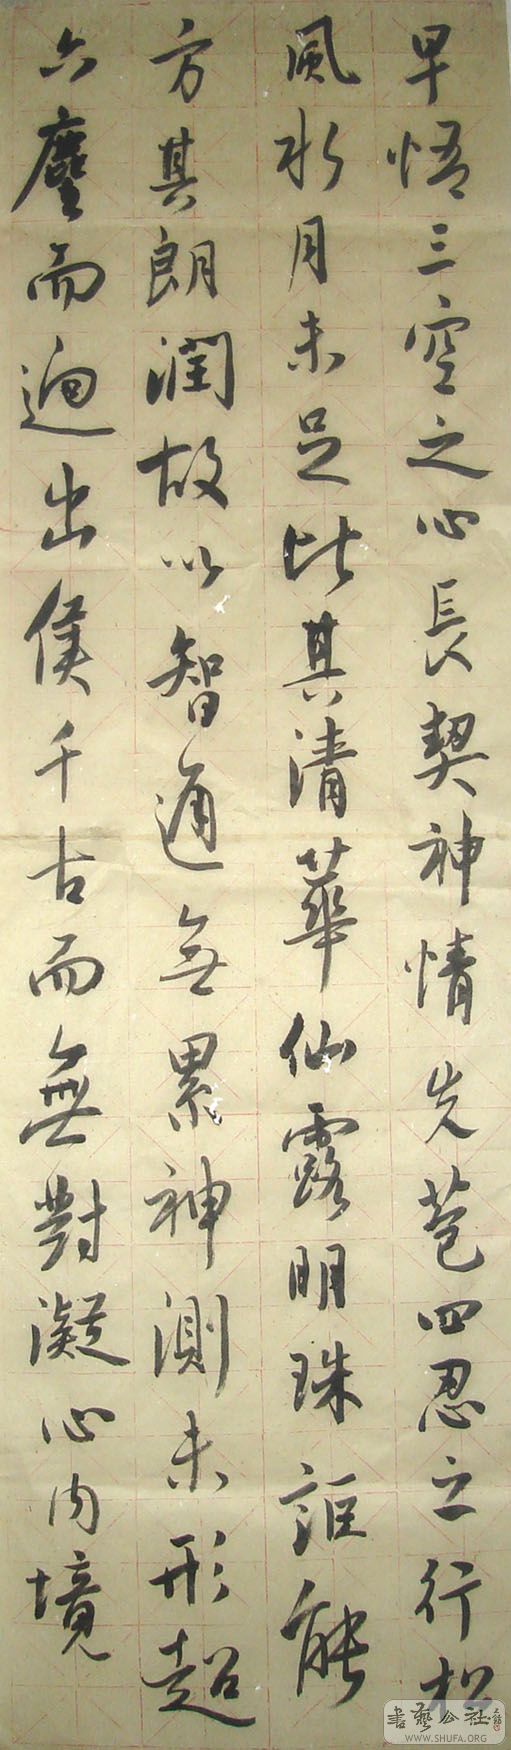 早悟三空之心長契神情先苞四忍之行松
風水月未足比其清華仙露明珠詎能
方其朗潤故以智通無累神測未形超
六塵而迥出隻千古而無對凝心內境
書藝公社
WWW.SHUFA.ORG